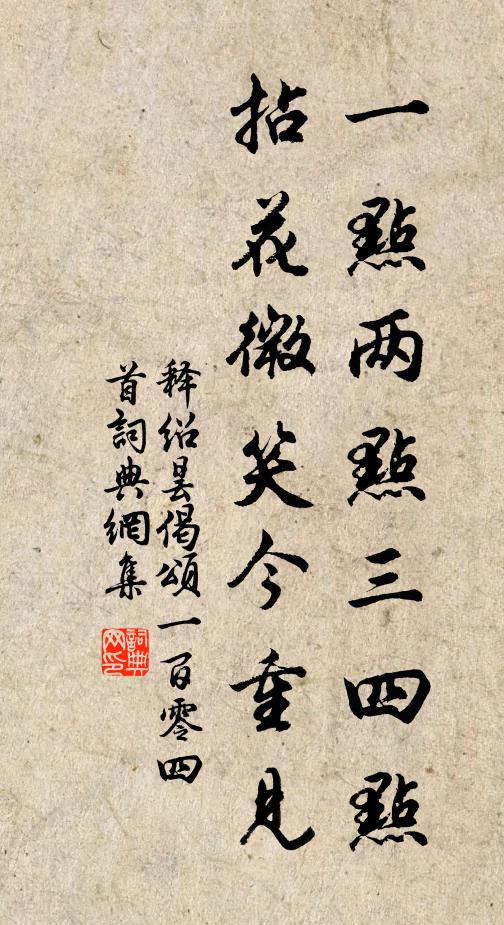 一點两點三四點
拈花微笑今重見
释紹曇偈頌一百零四
首詞典網集
詞典网印